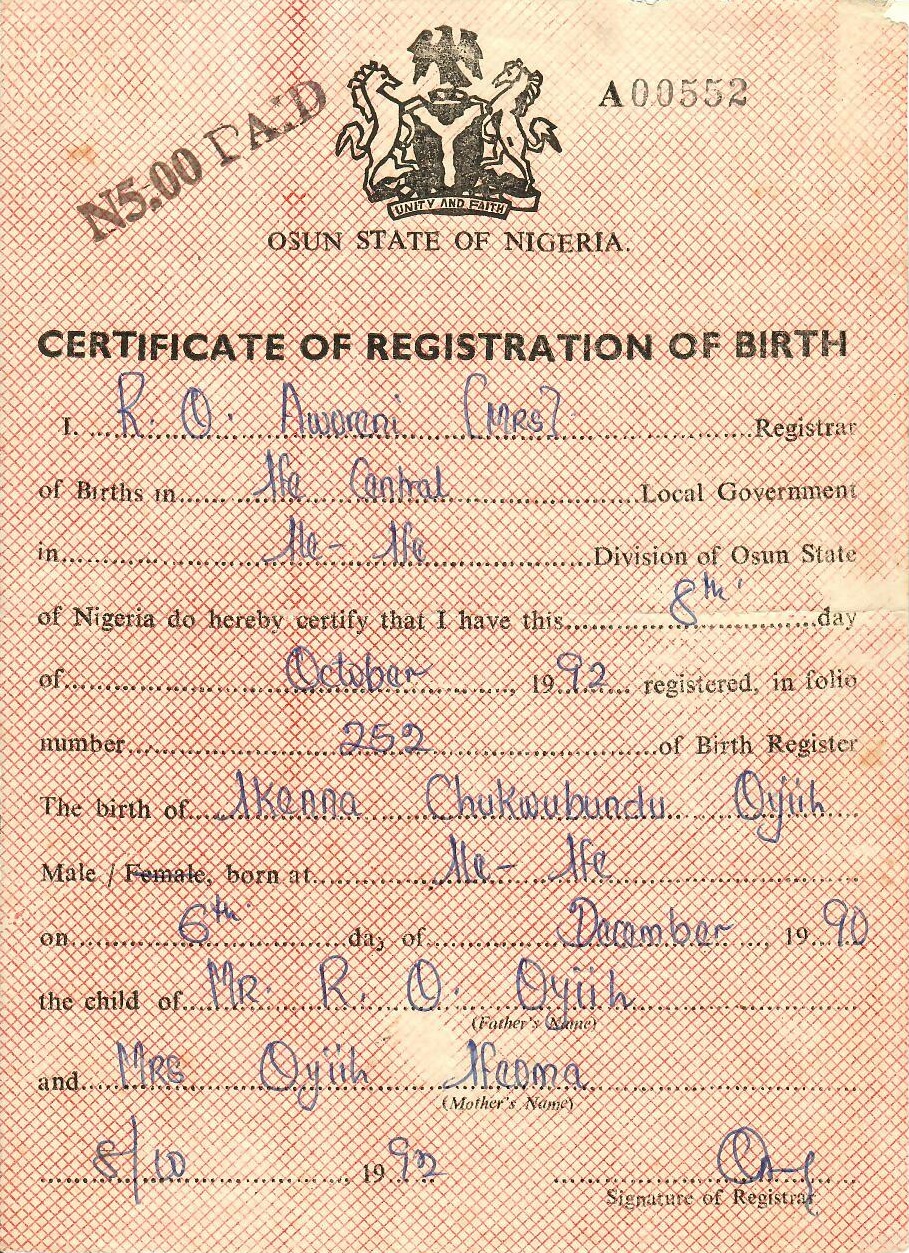 N5:00 PAID
A00552
UNITY AND FAITH
OSUN STATE OF NIGERIA.
CERTIFICATE OF REGISTRATION OF BIRTH
I. R. O. Aworeni (MRS) Registrar
of Births in Ife Central Local Government
in Ile - Ife Division of Osun State
of Nigeria do hereby certify that I have this 8th day
of October 1992 registered, in folio
number 252 of Birth Register
The birth of Ikenna Chukwubundu Ojiih
Male / Female, born at Ile - Ife
on 6th day of December, 1990
the child of MR. R. O. Ojiih
(Father's Name)
and MRS Ojiih Ifeoma
(Mother's Name)
8/10 1992
Signature of Registrar